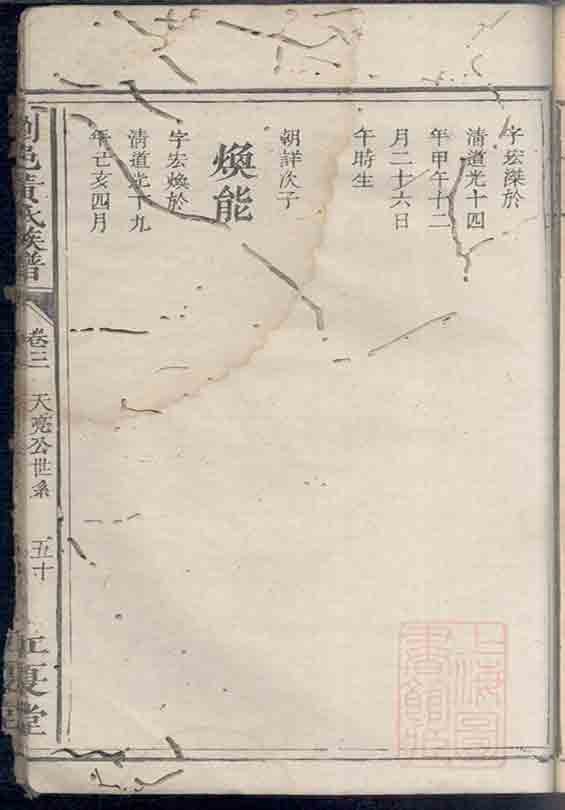 字宏於
清道光十四
年甲午十二
月二十六日
午時生
朝詳次子
煥能
字宏煥於
清道光十九
年己亥四月
邑黃氏族譜
卷三
天亮公世系
五十
夏堂
上海圖
書館藏